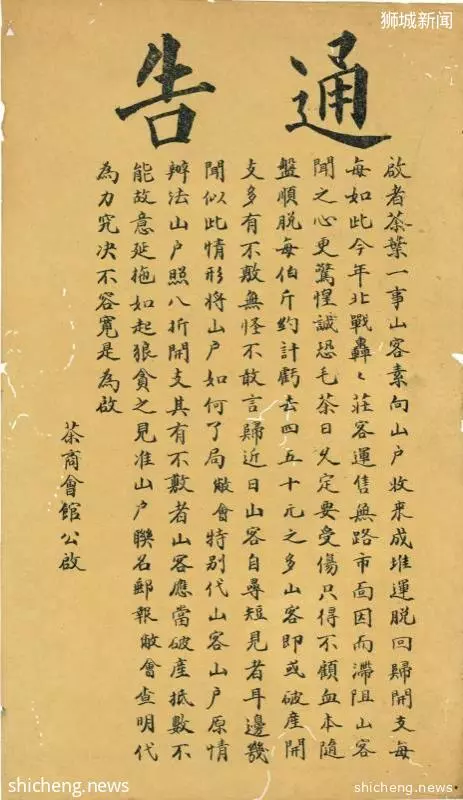 狮城新闻
通告
啟者茶葉一事山客素向山户收来成堆運脱回歸開支每
每如此今年北戰轟々莊客運售無路市面因而滯阻山客
聞之心更驚惶誠恐毛茶日久定要受傷只得不顧血本隨
盤順脱每伯斤約計虧去四五十元之多山客即或破產開
支多有不敷無怪不敢言歸近日山客自尋短見者耳邊幾
聞似此情形將山户如何了局敝會特别代山客山户原情
辦法山户照八折開支其有不敷者山客應當破產抵數不
能故意延拖如起狼貪之見准山户聯名郵報敝會查明代
為力究决不容寬是為啟
茶商會館公啟
shicheng.news
shicheng.news